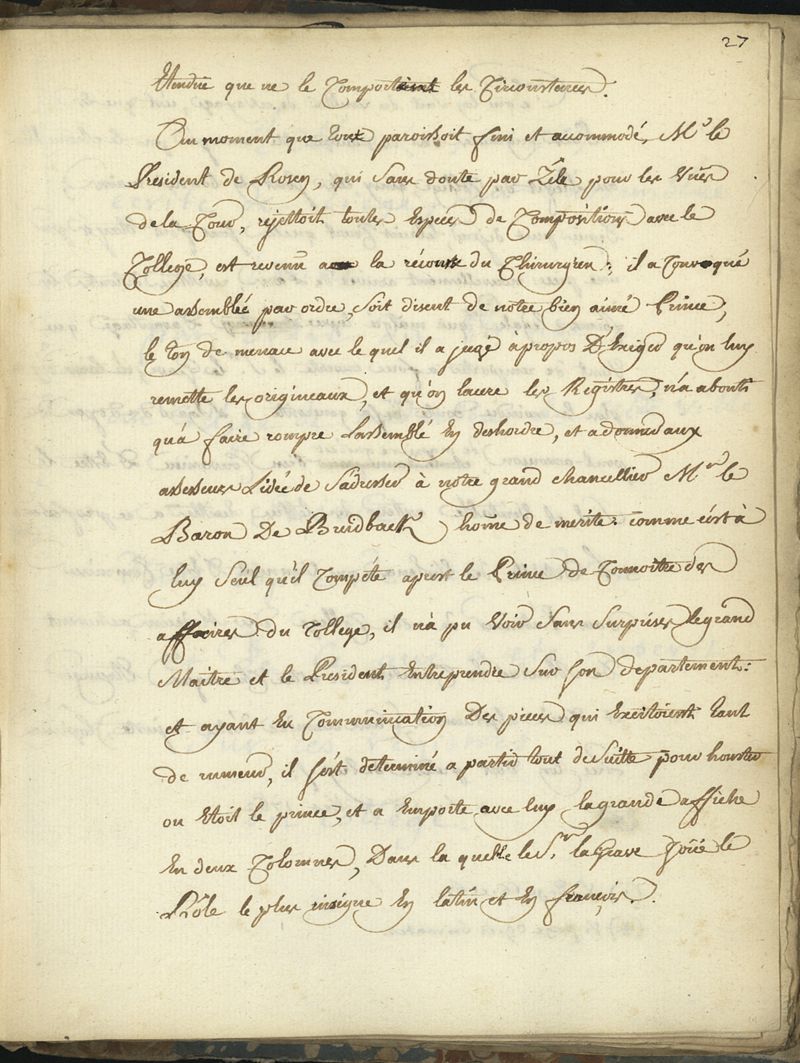 27
Etendue que ne le Comportent les Circonstences.
Au moment que tout paroissoit fini et accommodé, Mr le
President de Rosen, qui sans doute par Zéle pour les Vües
de la Cour, rejettoit toutes Especes de Compositions avec le
College, est revenu a la récousse du Chirurgien; il a Convoqué
une assemblée par ordre, soit disent de notre bien aimé Prince,
le ton de menace avec le quel il a jugé à propos D'Exiger qu'on luy
remette les origineaux, et qu'on lacere les Registres, n'a abouti
qu'a faire rompre Lassemblé En deshordre, et a donned aux
assesseurs Lidée de Sadresser à notre grand chancellier Mr le
Baron De Breidback home de merite: comme c'est à
luy Seul qu'il Compéte aprest le Prince de Connoitre des
affaires du College, il n'a pu Voir Sans Surprises le grand
Maitre et le President Entreprendre Sur son departement:
et ayant Eu Communication Des pieces qui Excitoient tant
de rumeur, il s'est determiné a partir tout de Suitte pour
ou Etoit le prince, et a Emporte avec luy la grande affiche
En deux Colomnes, Dans la quelle le Sr. la Grave Joüe le
Rôle le plus insigne En latin et En françois.